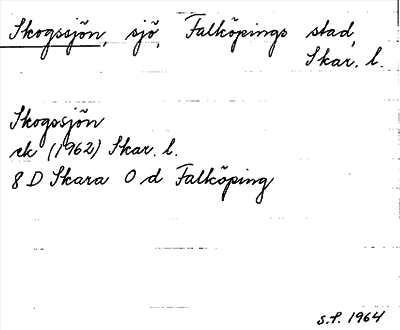 Skogssjön, sjö, Falköpings stad,
Skar. l.
Skogssjön
ek (1962) Skar. l.
8 D Skara O d Falköping
S.F. 1964